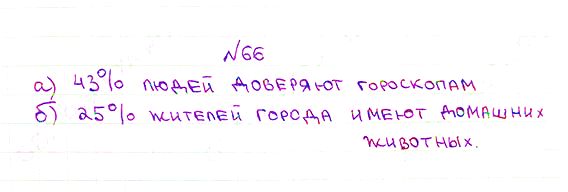 №66
а) 43% людей доверяют гороскопам
б) 25% жителей города имеют домашних
животных.